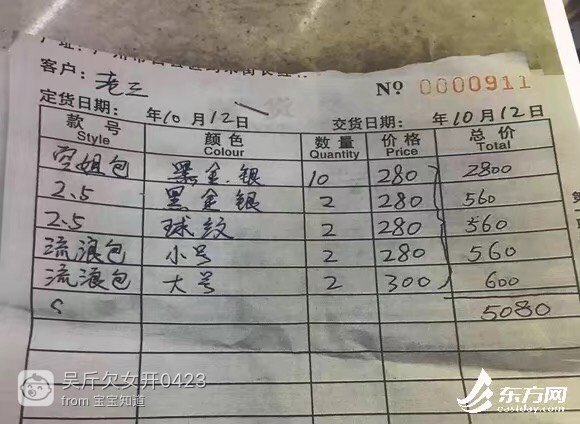 客户: 老三 Nº 0000911
定货日期: 年10月12日 交货日期: 年10月12日
款号 颜色 数量 价格 总价
Style Colour Quantity Price Total
空姐包 黑金.银 10 280 2800
2.5 黑金银 2 280 560
2.5 球纹 2 280 560
流浪包 小号 2 280 560
流浪包 大号 2 300 600
5080
吴斤欠女开0423
from 宝宝知道
东方网
eastday.com